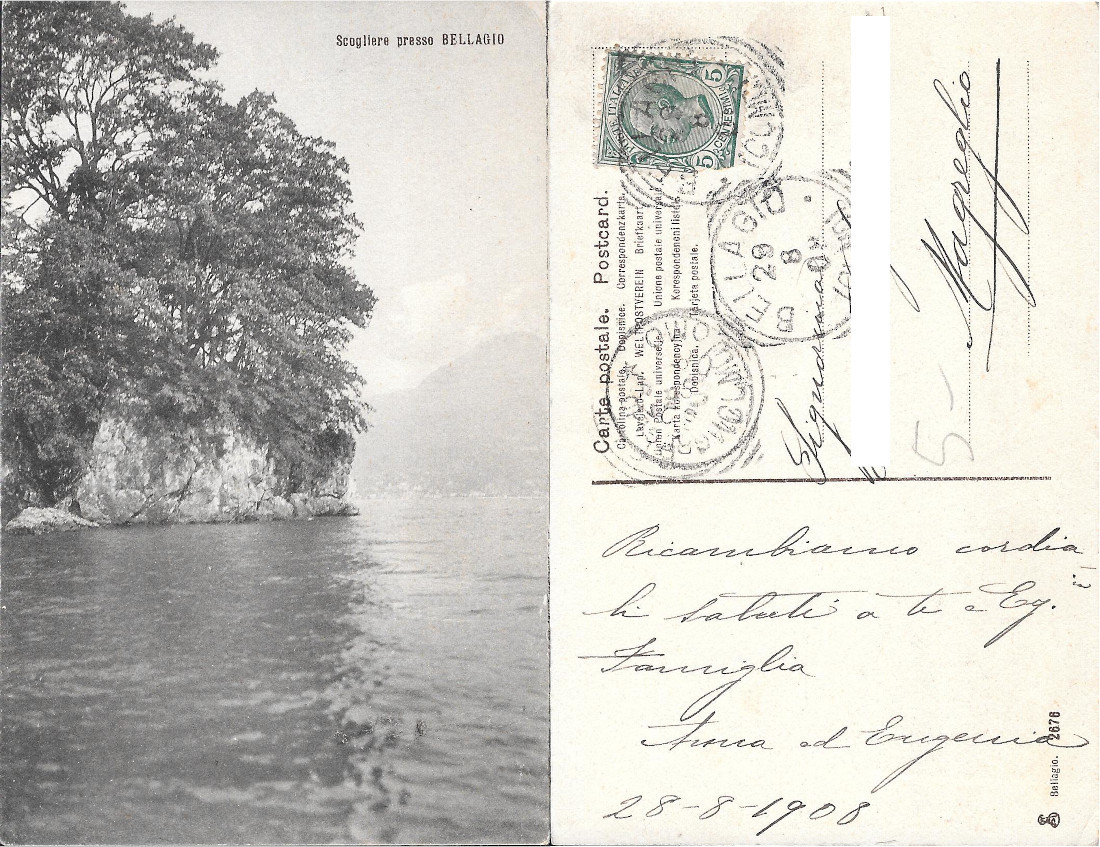 Scogliere presso BELLAGIO
5 5
Carte postale. Postcard.
Cartolina postale. Dopisnice. Correspondenzkarte.
Levelező-Lap. WELTPOSTVEREIN Briefkaart
Union Postale universelle. Unione postale universale
Karta korespondencyjna. Korespondencni listek.
Dopisnica. Tarjeta postale.
BELLAGIO
29
8
08
Signorina
Magreglio
5-
Ricambiamo cordia
li saluti a te e Eg.
Famiglia
Anna ed Eugenia
28-8-1908
Bellagio. 2676